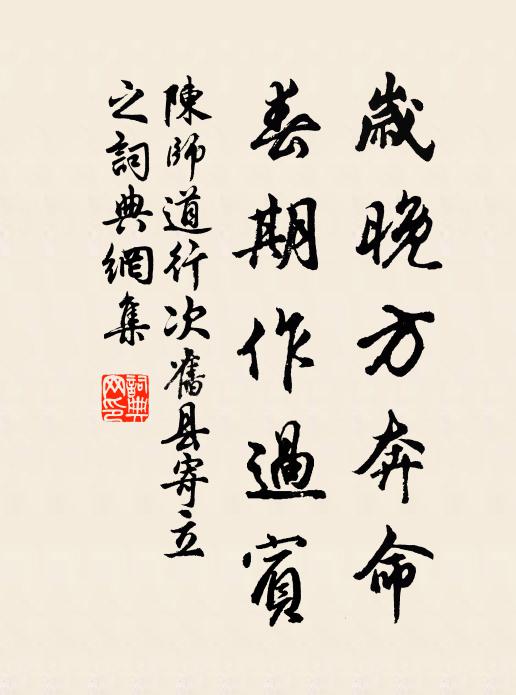 歲晚方奔命
春期作過賓
陳師道行次舊县寄立
之詞典網集
詞典
网印